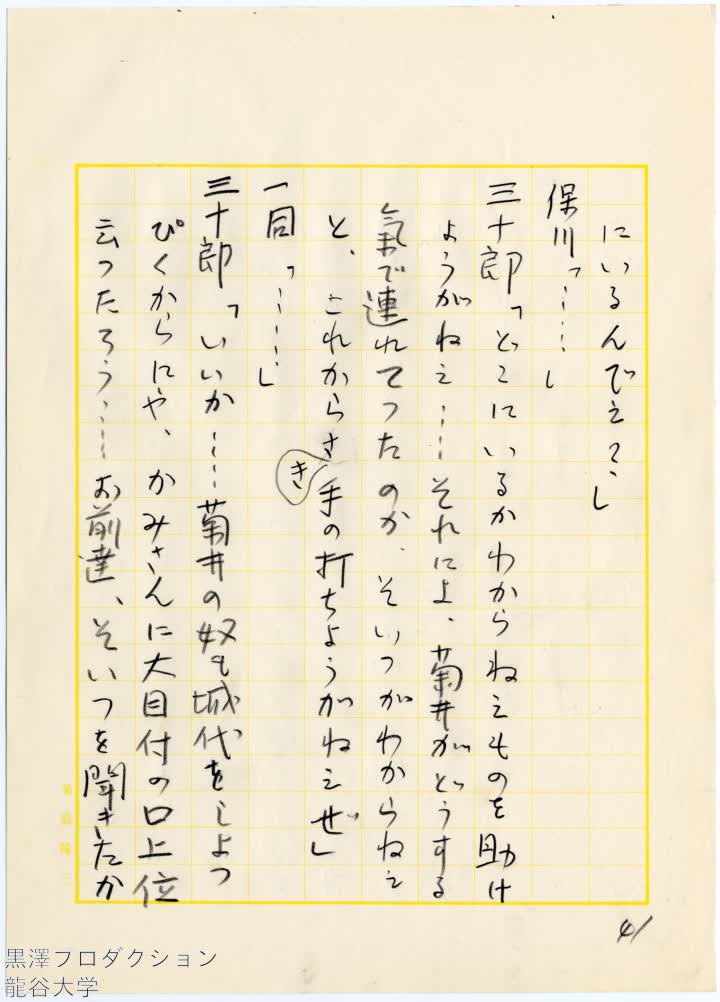 にいるんでえ？」
保川「……」
三十郎「どこにいるかわからねえものを助け
ようがねえ……それによ、菊井がどうする
気で連れてったのか、そいつがわからねえ
と、これからさき手の打ちようがねえぜ」
一同「……」
三十郎「いいか……菊井の奴も城代をしよつ
ぴくからにや、かみさんに大目付の口上位
云つたろう……お前達、そいつを聞きたか
41
黒澤プロダクション
龍谷大学